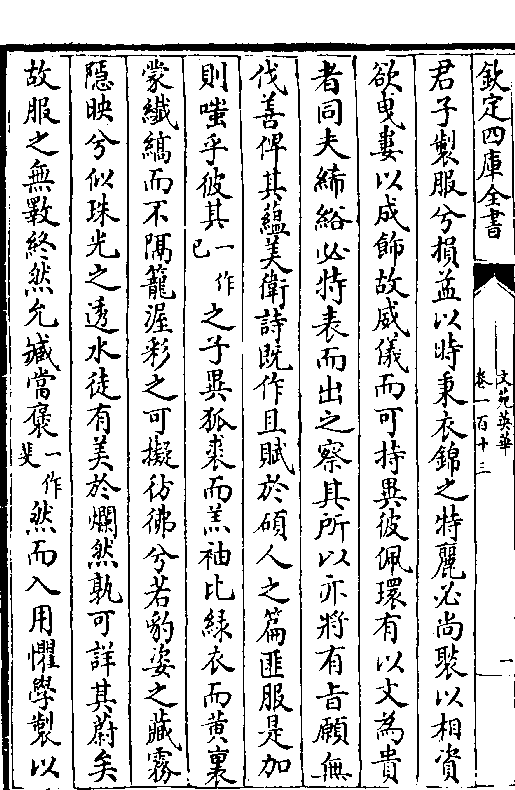 欽定四庫全書
文苑英華
卷一百十三
君子製服兮損益以時秉衣錦之特麗必尚褧以相資
欲曳婁以成飾故威儀而可持異彼佩環有以文為貴
者同夫絺綌必特表而出之察其所以亦將有旨願無
伐善俾其蘊美衛詩既作且賦於碩人之篇匪服是加
則嗤乎彼其一作已之子異狐裘而羔袖比綠衣而黄裏
蒙纖縞而不隔籠渥彩之可擬彷彿兮若豹姿之藏霧
隱映兮似珠光之透水徒有美於爛然孰可詳其蔚矣
故服之無斁終然允臧當褒一作斐然而入用懼學製以